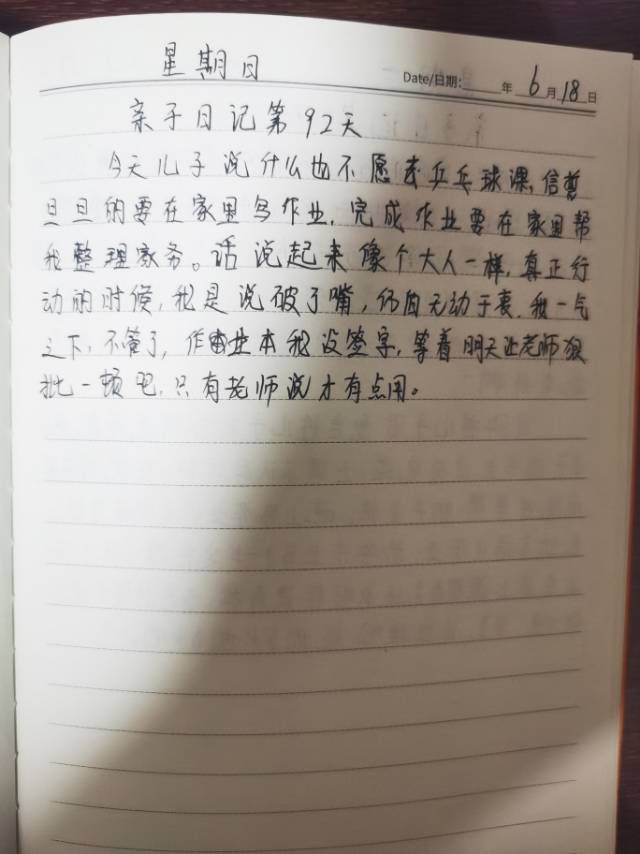 星期日 Date/日期: 年 6月18日
亲子日记第92天
今天儿子说什么也不愿去乒乓球课,信誓
旦旦的要在家里写作业,完成作业要在家里帮
我整理家务。话说起来像个大人一样,真正行
动的时候,我是说破了嘴,仍自无动于衷.我一气
之下,不管了,作业本我没签字,等着明天让老师狠
批一顿吧,只有老师说才有点用。